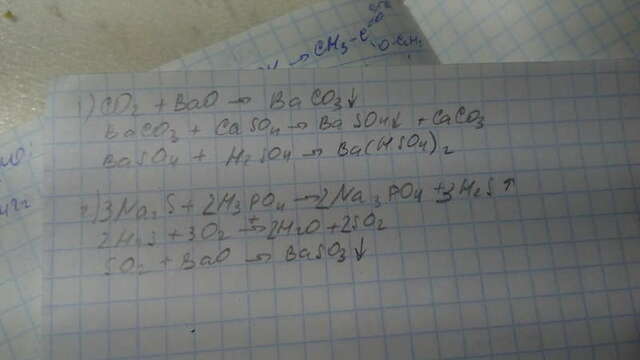 CH₃-C
1) CO₂ + BaO → BaCO₃↓
BaCO₃ + CaSO₄ → BaSO₄↓ + CaCO₃
BaSO₄ + H₂SO₄ → Ba(HSO₄)₂
2) 3Na₂S + 2H₃PO₄ → 2Na₃PO₄ + 3H₂S↑
2H₂S + 3O₂ →ᵗ 2H₂O + 2SO₂
SO₂ + BaO → BaSO₃↓